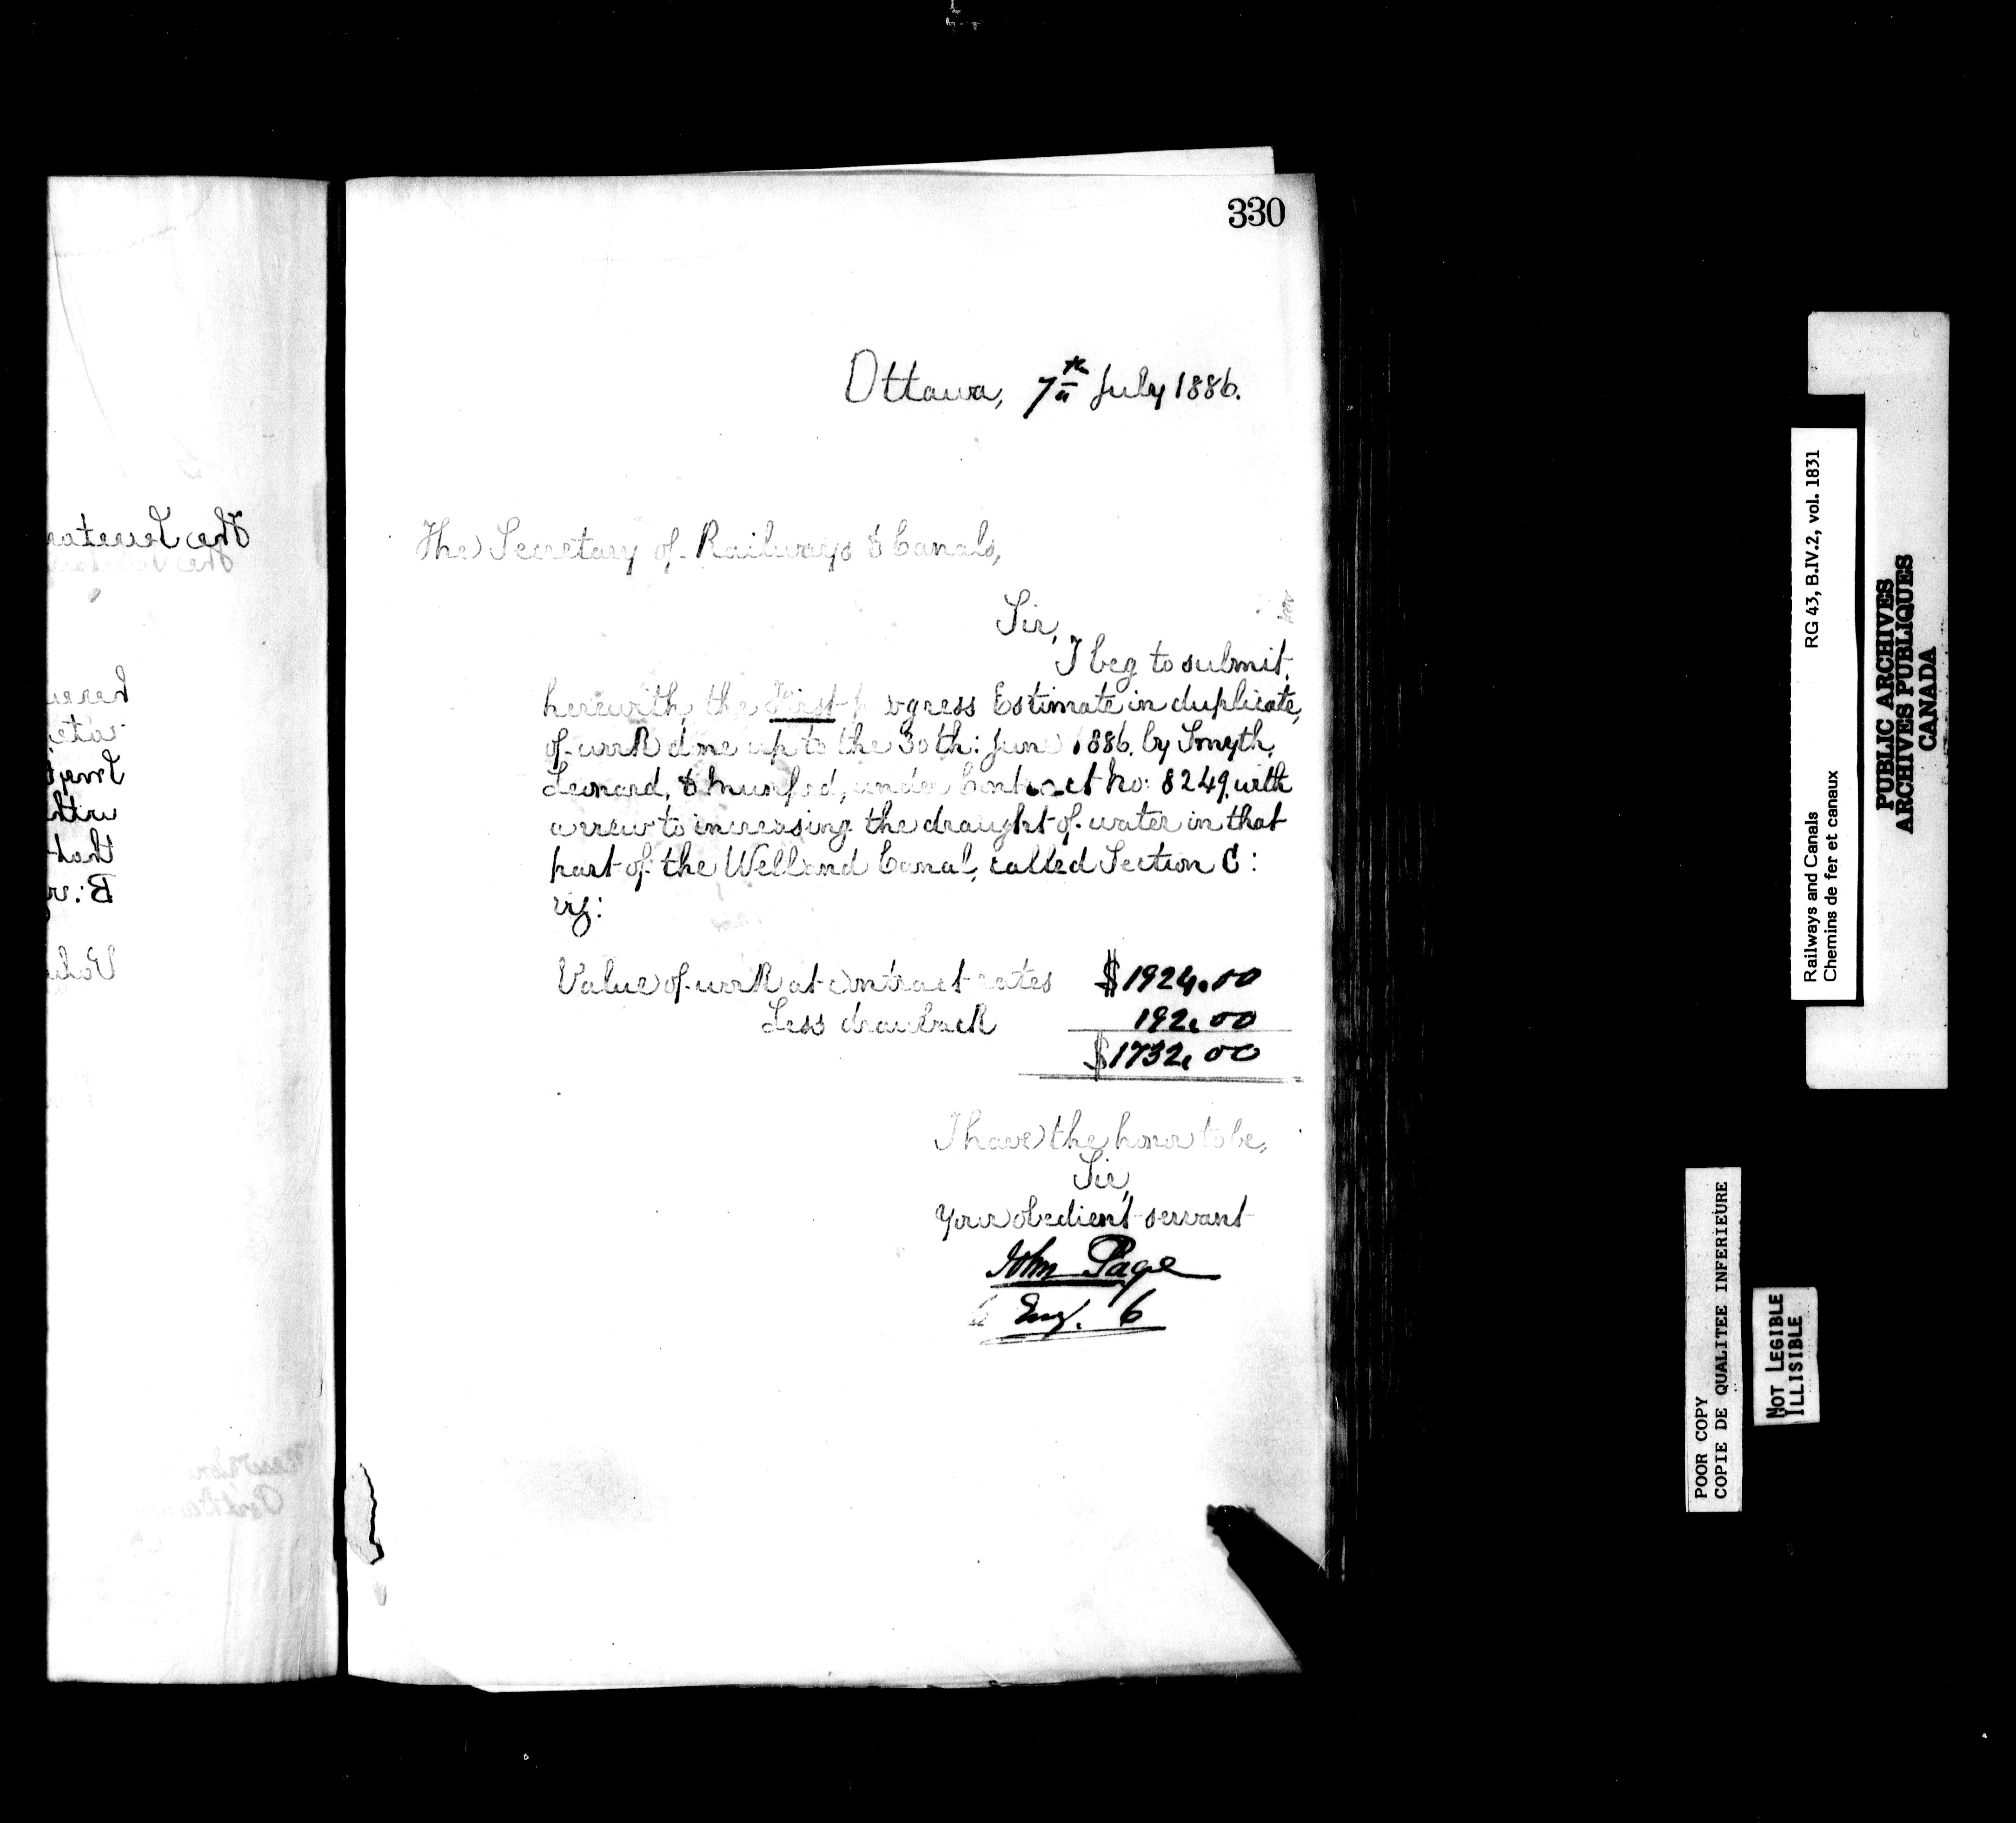 330
Ottawa, 7th July 1886.
The Secretary of Railways & Canals,
Sir,
I beg to submit
herewith, the First Progress Estimate in duplicate,
of work done up to the 30th: June 1886. by Smyth,
Leonard, & Mumford, under Contract No: 8249. with
a view to increasing the draught of water in that
part of the Welland Canal, called Section C:
viz:
Value of work at contract rates $1924.00
Less drawback 192.00
$1732.00
I have the honor to be,
Sir,
Your obedient servant
John Page
Eng. C
Railways and Canals RG 43, B.IV.2, vol. 1831
Chemins de fer et canaux
PUBLIC ARCHIVES
ARCHIVES PUBLIQUES
CANADA
POOR COPY
COPIE DE QUALITEE INFERIEURE
NOT LEGIBLE
ILLISIBLE